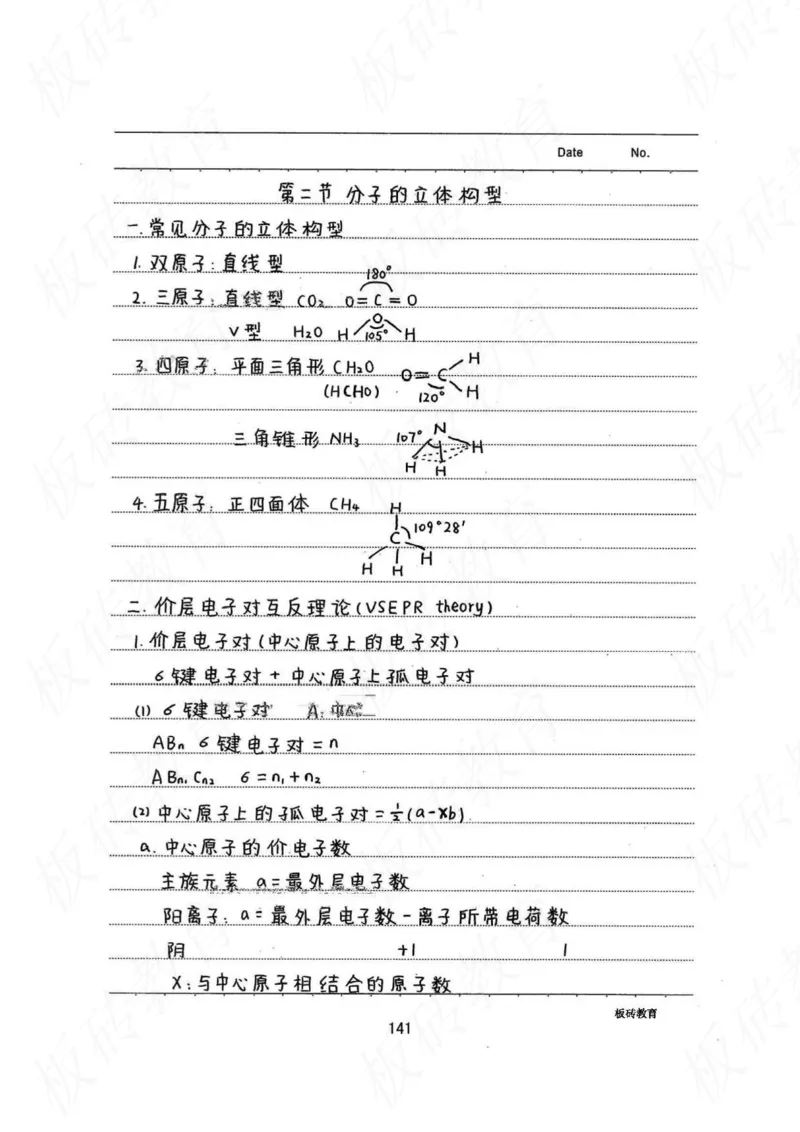 Date No.
第二节 分子的立体构型
一.常见分子的立体构型
1. 双原子:直线型
180°
2. 三原子:直线型 CO₂ O=C=O
V型 H₂O H O H 105°
3. 四原子:平面三角形 CH₂O O=C H
(HCHO) 120° H
三角锥形 NH₃ 107° N H
H H
4. 五原子:正四面体 CH₄ H
C 109°28′
H H H
二. 价层电子对互斥理论(VSEPR theory)
1. 价层电子对(中心原子上的电子对)
σ键电子对 + 中心原子上孤电子对
(1) σ键电子对 A:
ABn σ键电子对 = n
ABn₁Cn₂ σ = n₁+n₂
(2) 中心原子上的孤电子对 = ½(a-xb)
a. 中心原子的价电子数
主族元素 a=最外层电子数
阳离子: a= 最外层电子数-离子所带电荷数
阴 +1 1
X:与中心原子相结合的原子数
板砖教育
141